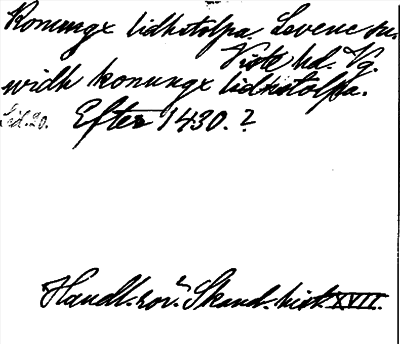 Konungx lidhstolpa Levene sn.
Viste hd. Vg.
widh konungx lidhstolpa.
Efter 1430.?
Handl. rör. Skand. hist. XVII.